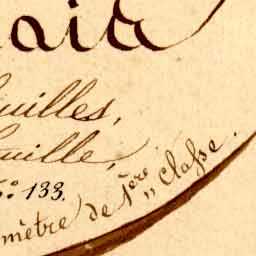 uilles,
uille,
º 133.
mètre de 1ère „ Classe.